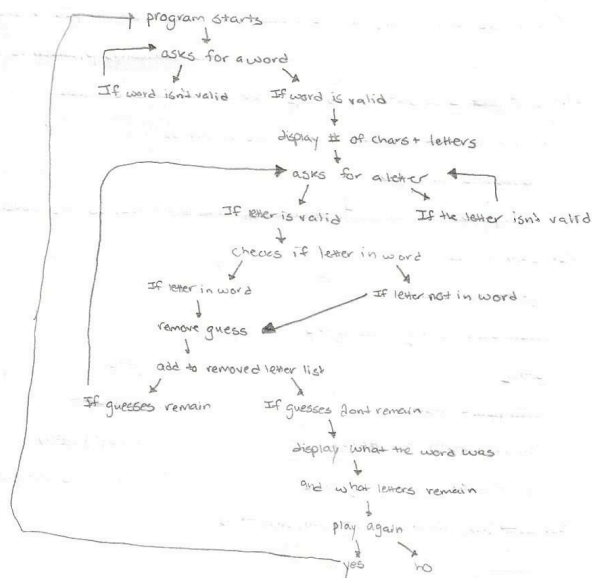 program starts
asks for a word
If word isn't valid
If word is valid
display # of chars + letters
asks for a letter
If letter is valid
If the letter isn't valid
checks if letter in word
If letter in word
If letter not in word
remove guess
add to removed letter list
If guesses remain
If guesses dont remain
display what the word was
and what letters remain
play again
yes
no